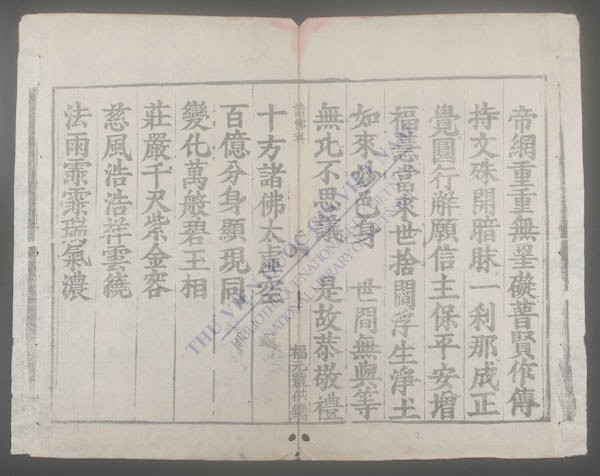 帝網重重無罣礙普賢作傳
持文殊開暗眛一刹那成正
覺圓行解願信主保平安增
福慧當來世捨閻浮生淨土
如來妙色身 世間無與等
無比不思議 是故恭敬禮
諸佛科
福元
十方諸佛太虛空
百億分身顯現同
變化萬般碧玉相
莊嚴千尺紫金容
慈風浩浩祥雲繞
法雨霏霏瑞氣濃
THƯ VIỆN QUỐC GIA VIỆT NAM
BIBLIOTHÈQUE NATIONALE DU VIETNAM
NATIONAL LIBRARY OF VIETNAM